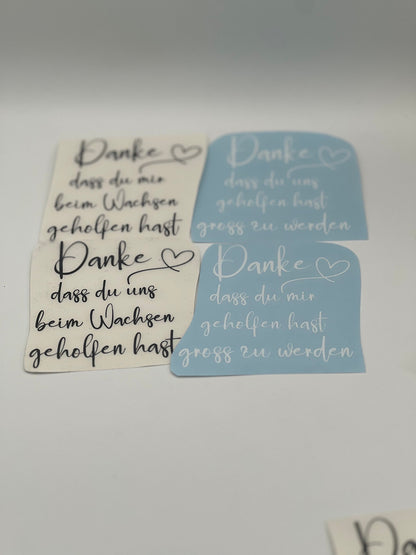 Danke
dass du mir
beim Wachsen
geholfen hast
Danke
dass du uns
geholfen hast
gross zu werden
Danke
dass du uns
beim Wachsen
geholfen hast
Danke
dass du mir
geholfen hast
gross zu werden